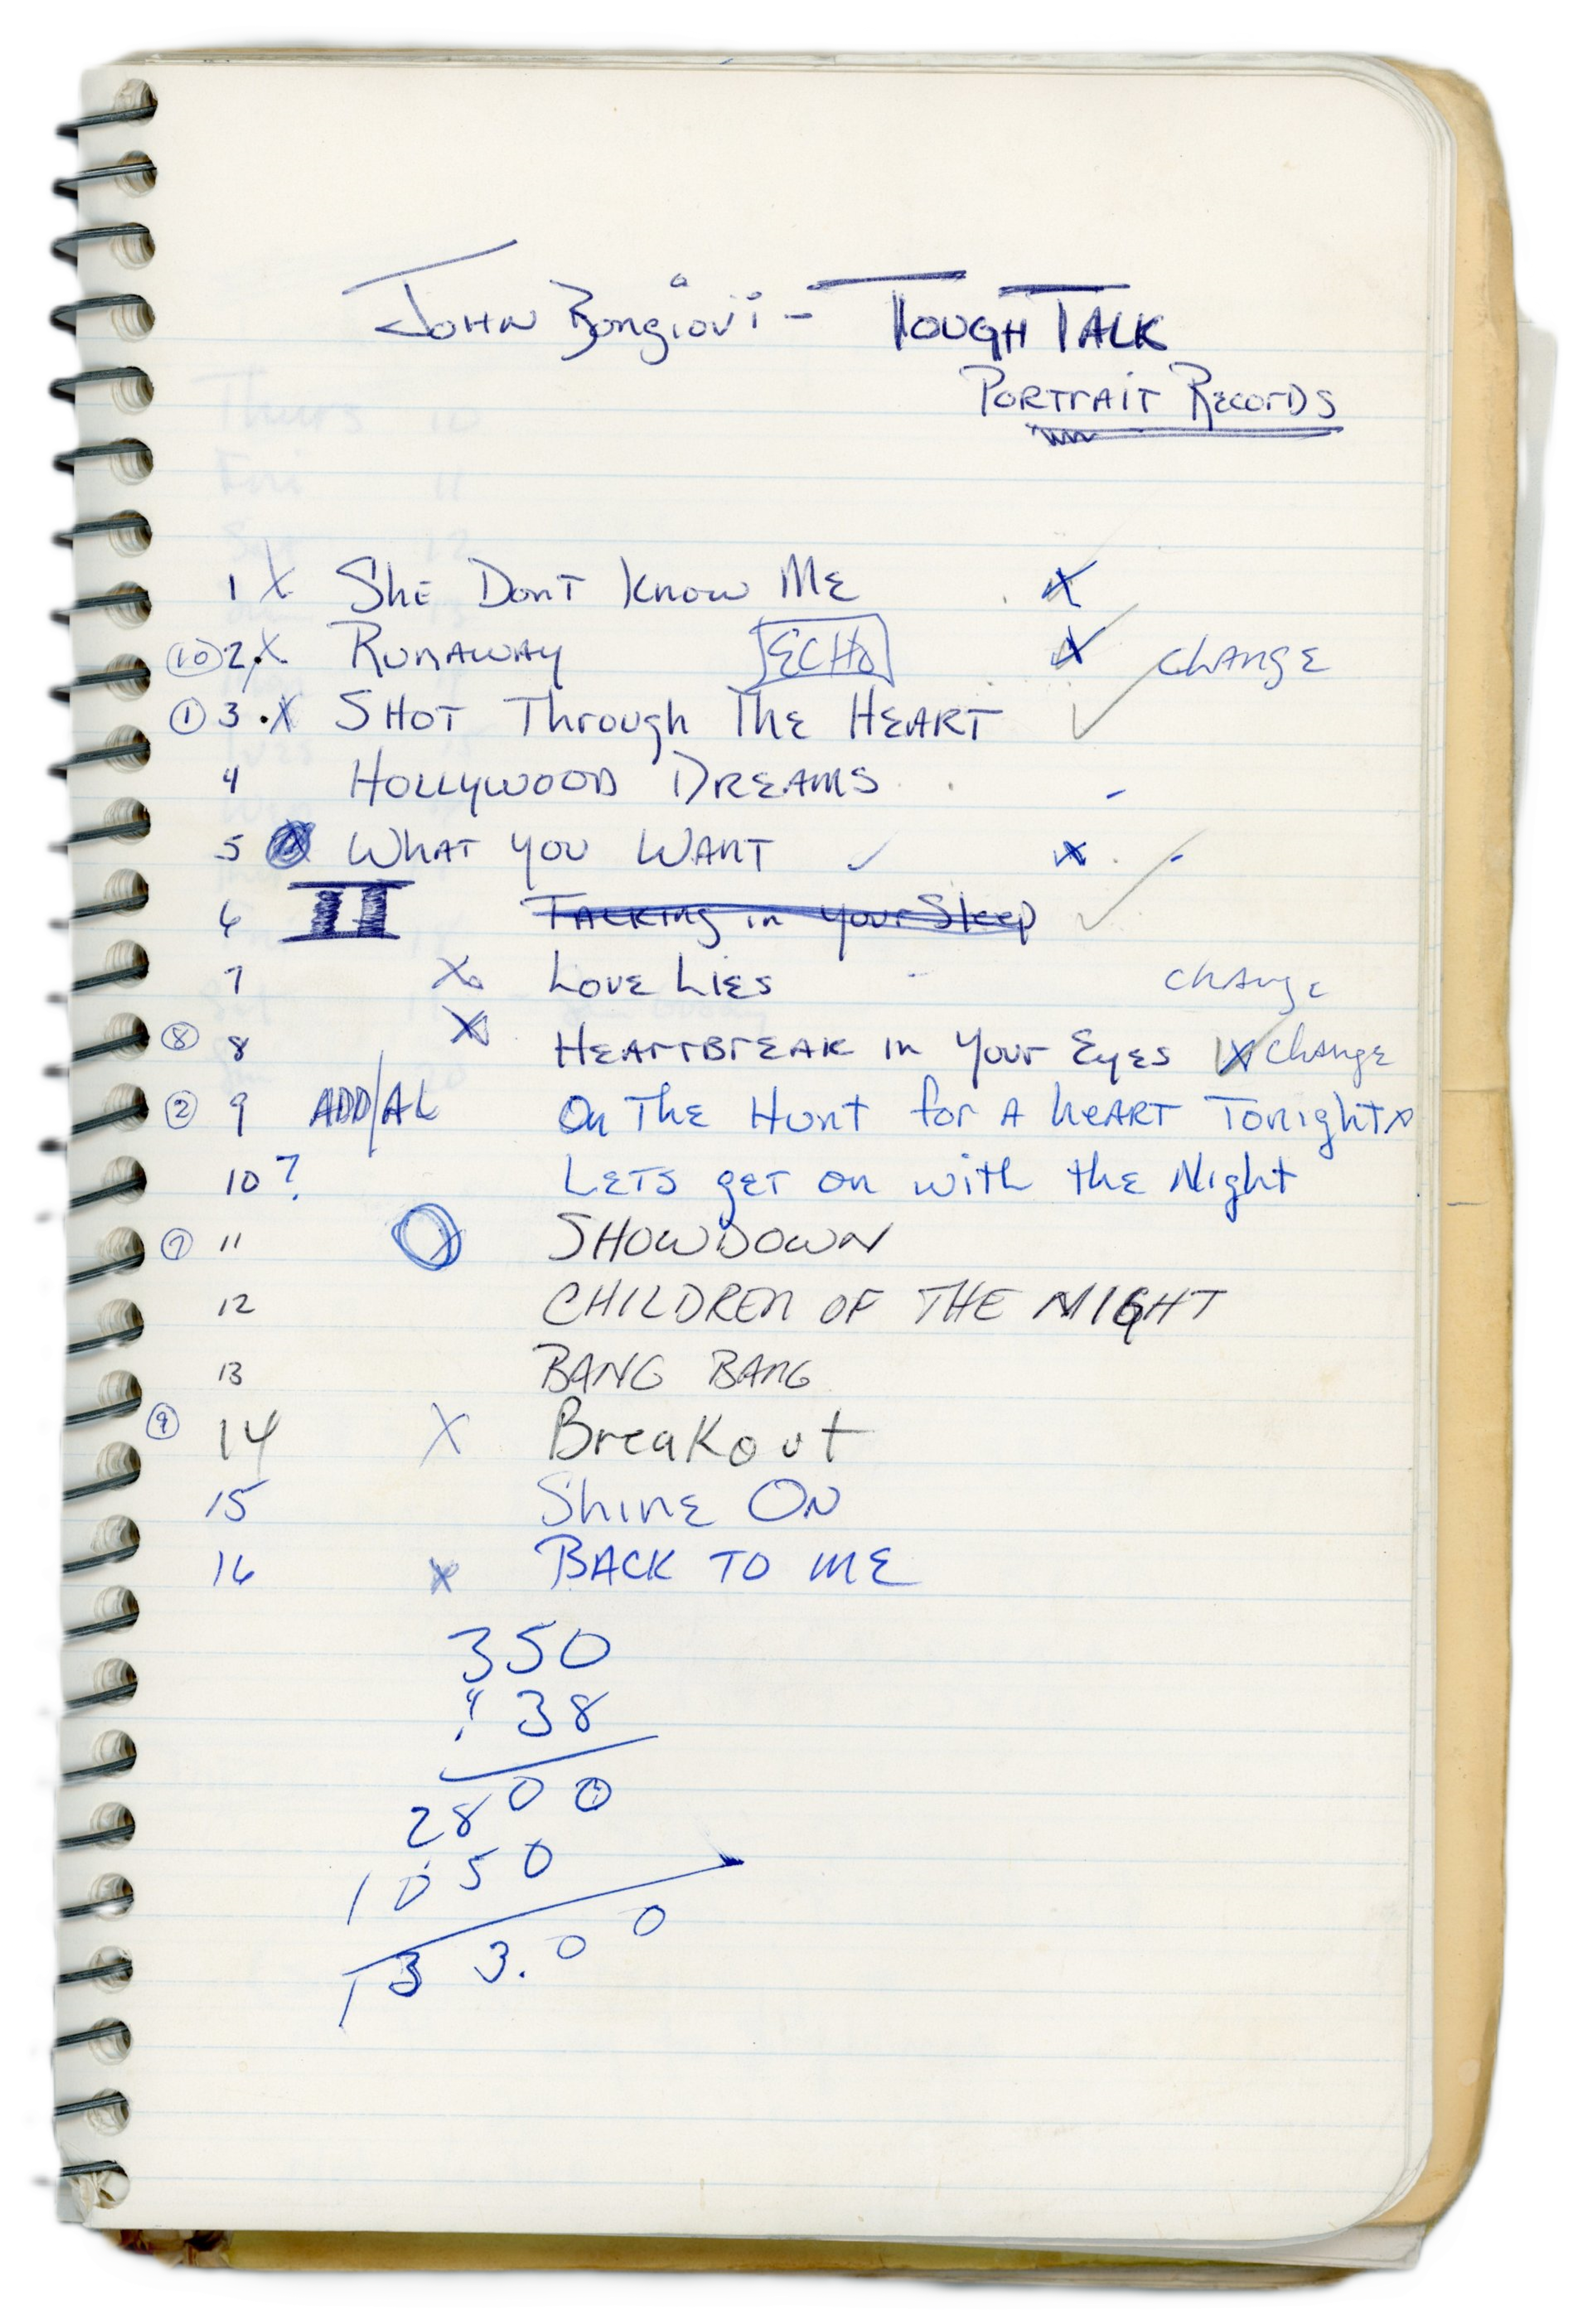 John Bongiovi - Tough Talk
Portrait Records
1 X She Dont Know Me X
(10) 2. X Runaway ECHO X change
(1) 3 . X Shot Through The Heart ✓
4 Hollywood Dreams -
5 X What you Want ✓ X -
6 II Talking in your Sleep ✓
7 X Love Lies - change
(8) 8 X Heartbreak in your Eyes X change
(2) 9 ADD/AL On The Hunt for A heart Tonight
10 ? Lets get on with the Night
(7) 11 X SHOWDOWN
12 CHILDREN OF THE NIGHT
13 BANG BANG
(9) 14 X Breakout
15 Shine On
16 X BACK TO ME
350
38
2800
1050
133.00